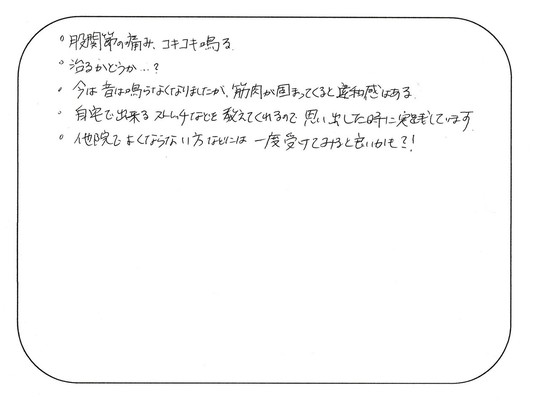 。股関節の痛み、コキコキ鳴る
。治るかどうか…?
。今は音は鳴らなくなりましたが、筋肉が固まってくると違和感はある
。自宅で出来るストレッチなどを教えてくれるので思い出した時に実践しています
。他院でよくならない方などには一度受けてみると良いかも?!